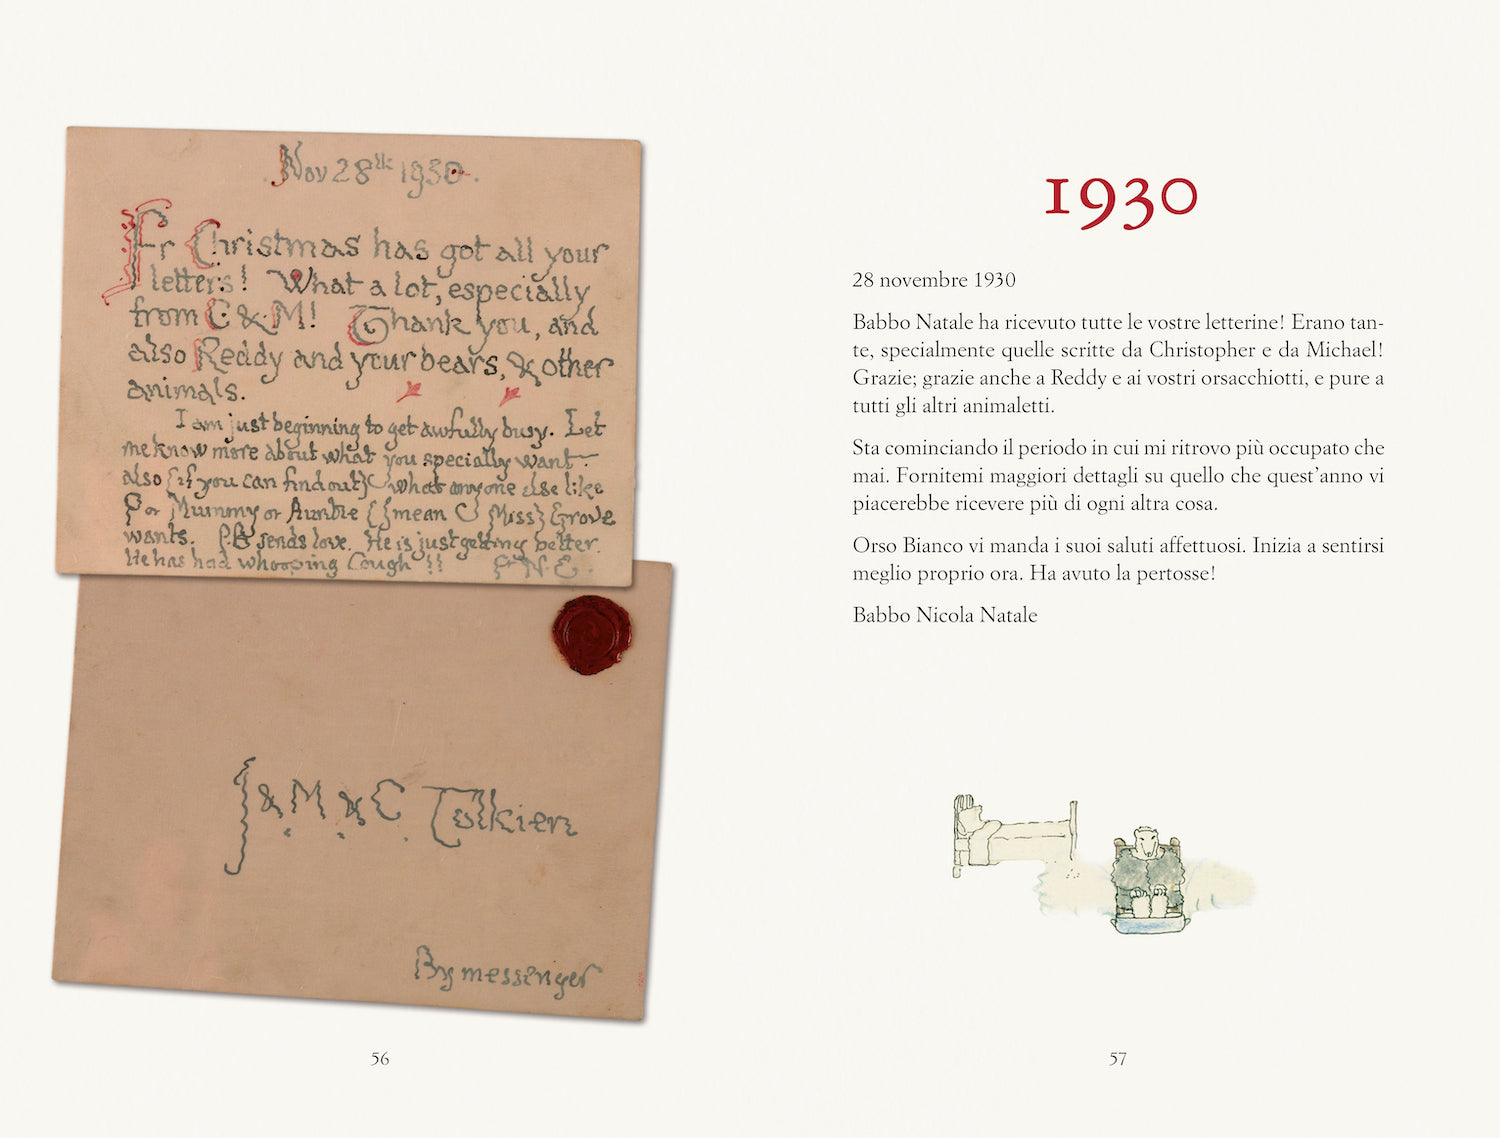 Nov 28th 1930.
Fr Christmas has got all your
letters! What a lot, especially
from C & M! Thank you, and
also Reddy and your bears, & other
animals.
I am just beginning to get awfully busy. Let
me know more about what you specially want —
also {if you can find out} what anyone else like
or Mummy or Auntie {I mean Miss} Grove
wants. P.B sends love. He is just getting better.
He has had whooping Cough !!
F.N.C.
J & M & C Tolkien
By messenger
56
1930
28 novembre 1930
Babbo Natale ha ricevuto tutte le vostre letterine! Erano tan-
te, specialmente quelle scritte da Christopher e da Michael!
Grazie; grazie anche a Reddy e ai vostri orsacchiotti, e pure a
tutti gli altri animaletti.
Sta cominciando il periodo in cui mi ritrovo più occupato che
mai. Fornitemi maggiori dettagli su quello che quest'anno vi
piacerebbe ricevere più di ogni altra cosa.
Orso Bianco vi manda i suoi saluti affettuosi. Inizia a sentirsi
meglio proprio ora. Ha avuto la pertosse!
Babbo Nicola Natale
57